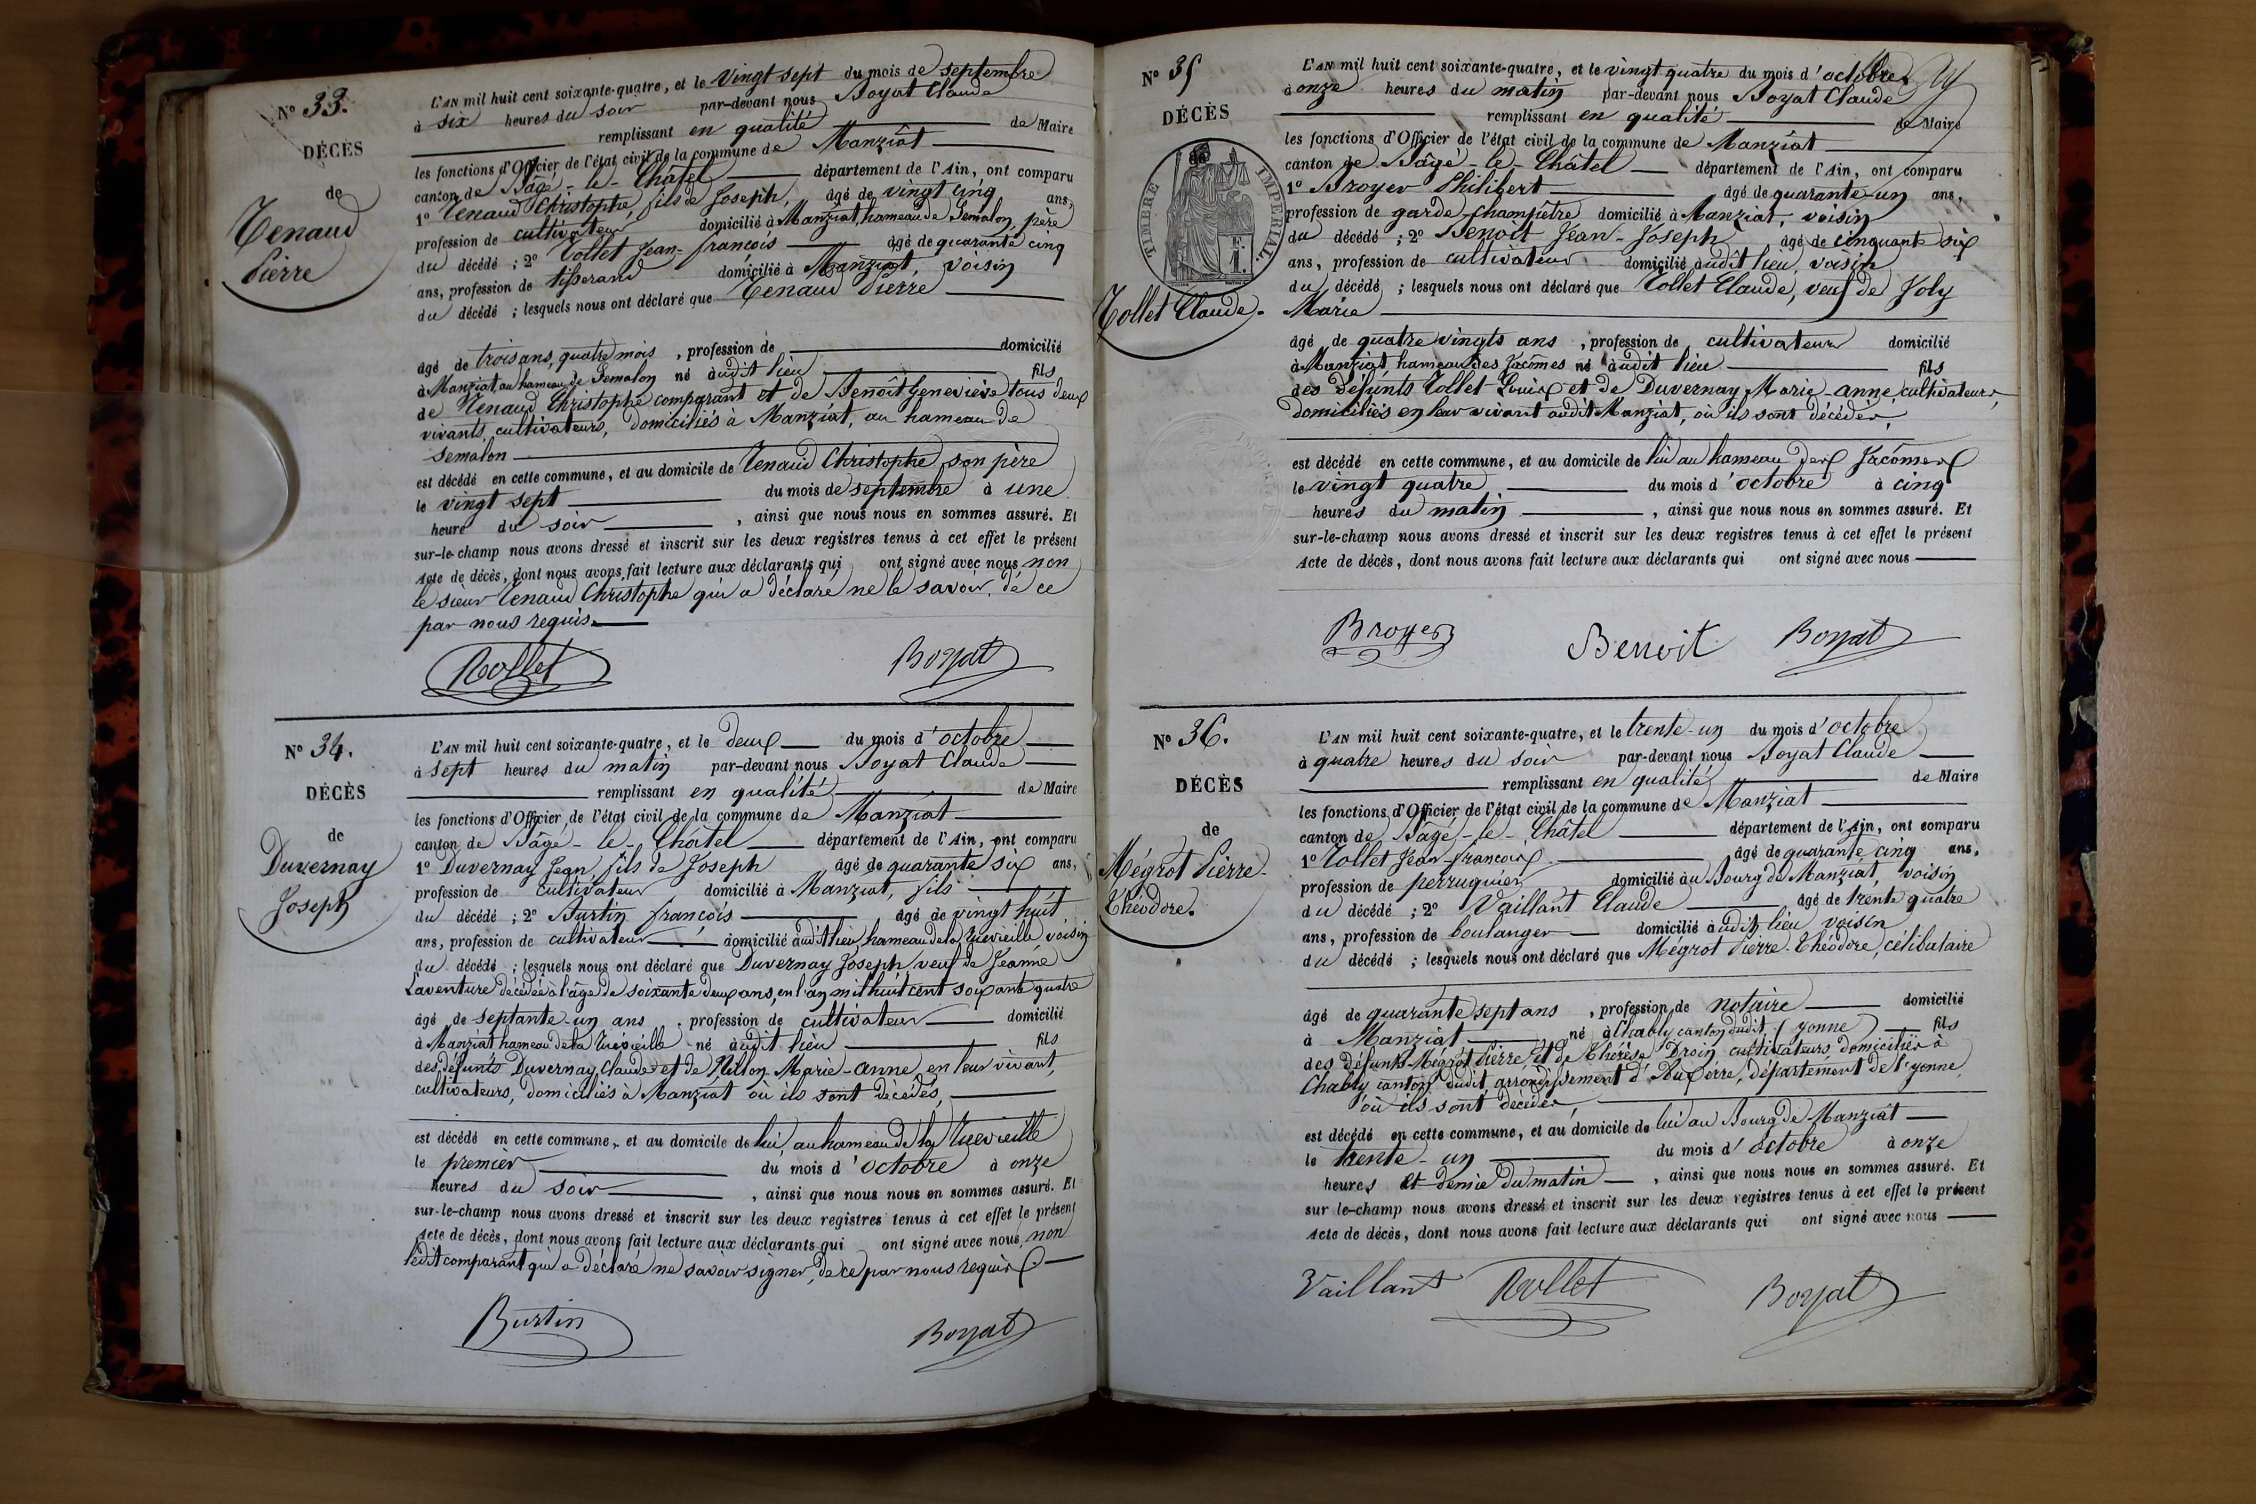 N° 33.
DÉCÈS
de
Tenaud
Pierre
L'AN mil huit cent soixante-quatre, et le vingt sept du mois de septembre
à six heures du soir par-devant nous Boyat Claude
remplissant en qualité de Maire
les fonctions d'Officier de l'état civil de la commune de Manziât
canton de Bâgé-le-Châtel département de l'Ain, ont comparu
1° Tenaud Christophe, fils de Joseph, âgé de vingt cinq ans,
profession de cultivateur domicilié à Manziat, hameau de Semalon, père
du décédé ; 2° Tollet Jean-françois âgé de quarante cinq
ans, profession de tisserand domicilié à Manziat, voisin
du décédé ; lesquels nous ont déclaré que Tenaud Pierre
âgé de trois ans, quatre mois, profession de domicilié
à Manziat au hameau de Semalon né audit lieu fils
de Tenaud Christophe comparant et de Benoît Geneviève tous deux
vivants, cultivateurs, domiciliés à Manziat, au hameau de
semalon
est décédé en cette commune, et au domicile de Tenaud Christophe, son père
le vingt sept du mois de septembre à une
heure du soir, ainsi que nous nous en sommes assuré. Et
sur-le-champ nous avons dressé et inscrit sur les deux registres tenus à cet effet le présent
Acte de décès, dont nous avons fait lecture aux déclarants qui ont signé avec nous non
le sieur Tenaud Christophe qui a déclaré ne le savoir, de ce
par nous requis.
Tollet Boyat
N° 34.
DÉCÈS
de
Duvernay
Joseph
L'AN mil huit cent soixante-quatre, et le deux du mois d'octobre
à sept heures du matin par-devant nous Boyat Claude
remplissant en qualité de Maire
les fonctions d'Officier de l'état civil de la commune de Manziat
canton de Bâgé-le-Châtel département de l'Ain, ont comparu
1° Duvernay Jean, fils de Joseph âgé de quarante six ans,
profession de cultivateur domicilié à Manziat, fils
du décédé ; 2° Burtin françois âgé de vingt huit
ans, profession de cultivateur domicilié audit lieu, hameau de la Ruevieille, voisin
du décédé ; lesquels nous ont déclaré que Duvernay Joseph, veuf de Jeanne
Laventure décédée à l'âge de soixante deux ans, en l'an mil huit cent soixante quatre
âgé de septante-un ans, profession de cultivateur domicilié
à Manziat hameau de la Ruevieille né audit lieu fils
des défunts Duvernay Claude et de Nillon Marie-anne, en leur vivant,
cultivateurs, domiciliés à Manziat où ils sont décédés,
est décédé en cette commune, et au domicile de lui, au hameau de la Ruevieille
le premier du mois d'octobre à onze
heures du soir, ainsi que nous nous en sommes assuré. Et
sur-le-champ nous avons dressé et inscrit sur les deux registres tenus à cet effet le présent
Acte de décès, dont nous avons fait lecture aux déclarants qui ont signé avec nous, non
ledit comparant qui a déclaré ne savoir signer, de ce par nous requis
Burtin Boyat
N° 35
DÉCÈS
TIMBRE IMPÉRIAL.
1 F.
Tollet Claude.
L'AN mil huit cent soixante-quatre, et le vingt quatre du mois d'octobre
à onze heures du matin par-devant nous Boyat Claude
remplissant en qualité de Maire
les fonctions d'Officier de l'état civil de la commune de Manziât
canton de Bâgé-le-Châtel département de l'Ain, ont comparu
1° Broyer Philibert âgé de quarante-un ans,
profession de garde-champêtre domicilié à Manziat, voisin
du décédé ; 2° Benoit Jean-Joseph âgé de cinquante six
ans, profession de cultivateur domicilié audit lieu, voisin
du décédé ; lesquels nous ont déclaré que Tollet Claude, veuf de Joly
Marie
âgé de quatre vingts ans, profession de cultivateur domicilié
à Manziat, hameau des Jacômes né audit lieu fils
des défunts Tollet Louis et de Duvernay Marie-anne, cultivateurs,
domiciliés en leur vivant audit Manziat, où ils sont décédés,
est décédé en cette commune, et au domicile de lui au hameau des Jacômes
le vingt quatre du mois d'octobre à cinq
heures du matin, ainsi que nous nous en sommes assuré. Et
sur-le-champ nous avons dressé et inscrit sur les deux registres tenus à cet effet le présent
Acte de décès, dont nous avons fait lecture aux déclarants qui ont signé avec nous
Broyer Benoit Boyat
N° 36.
DÉCÈS
de
Mégrot Pierre-
Théodore.
L'AN mil huit cent soixante-quatre, et le trente-un du mois d'octobre
à quatre heures du soir par-devant nous Boyat Claude
remplissant en qualité de Maire
les fonctions d'Officier de l'état civil de la commune de Manziat
canton de Bâgé-le-Châtel département de l'Ain, ont comparu
1° Tollet Jean-françois âgé de quarante cinq ans,
profession de perruquier domicilié au Bourg de Manziat, voisin
du décédé ; 2° Vaillant Claude âgé de trente quatre
ans, profession de boulanger domicilié audit lieu voisin
du décédé ; lesquels nous ont déclaré que Mégrot Pierre-Théodore, célibataire
âgé de quarante sept ans, profession de notaire domicilié
à Manziat né à Chably canton dudit (yonne) fils
des défunts Mégrot Pierre, et de Thérèse Droin, cultivateurs domiciliés à
Chably canton dudit, arrondissement d'Auxerre, département de l'yonne,
où ils sont décédés,
est décédé en cette commune, et au domicile de lui au Bourg de Manziât
le trente-un du mois d'octobre à onze
heures et demie du matin, ainsi que nous nous en sommes assuré. Et
sur le-champ nous avons dressé et inscrit sur les deux registres tenus à cet effet le présent
Acte de décès, dont nous avons fait lecture aux déclarants qui ont signé avec nous
Vaillant Tollet Boyat